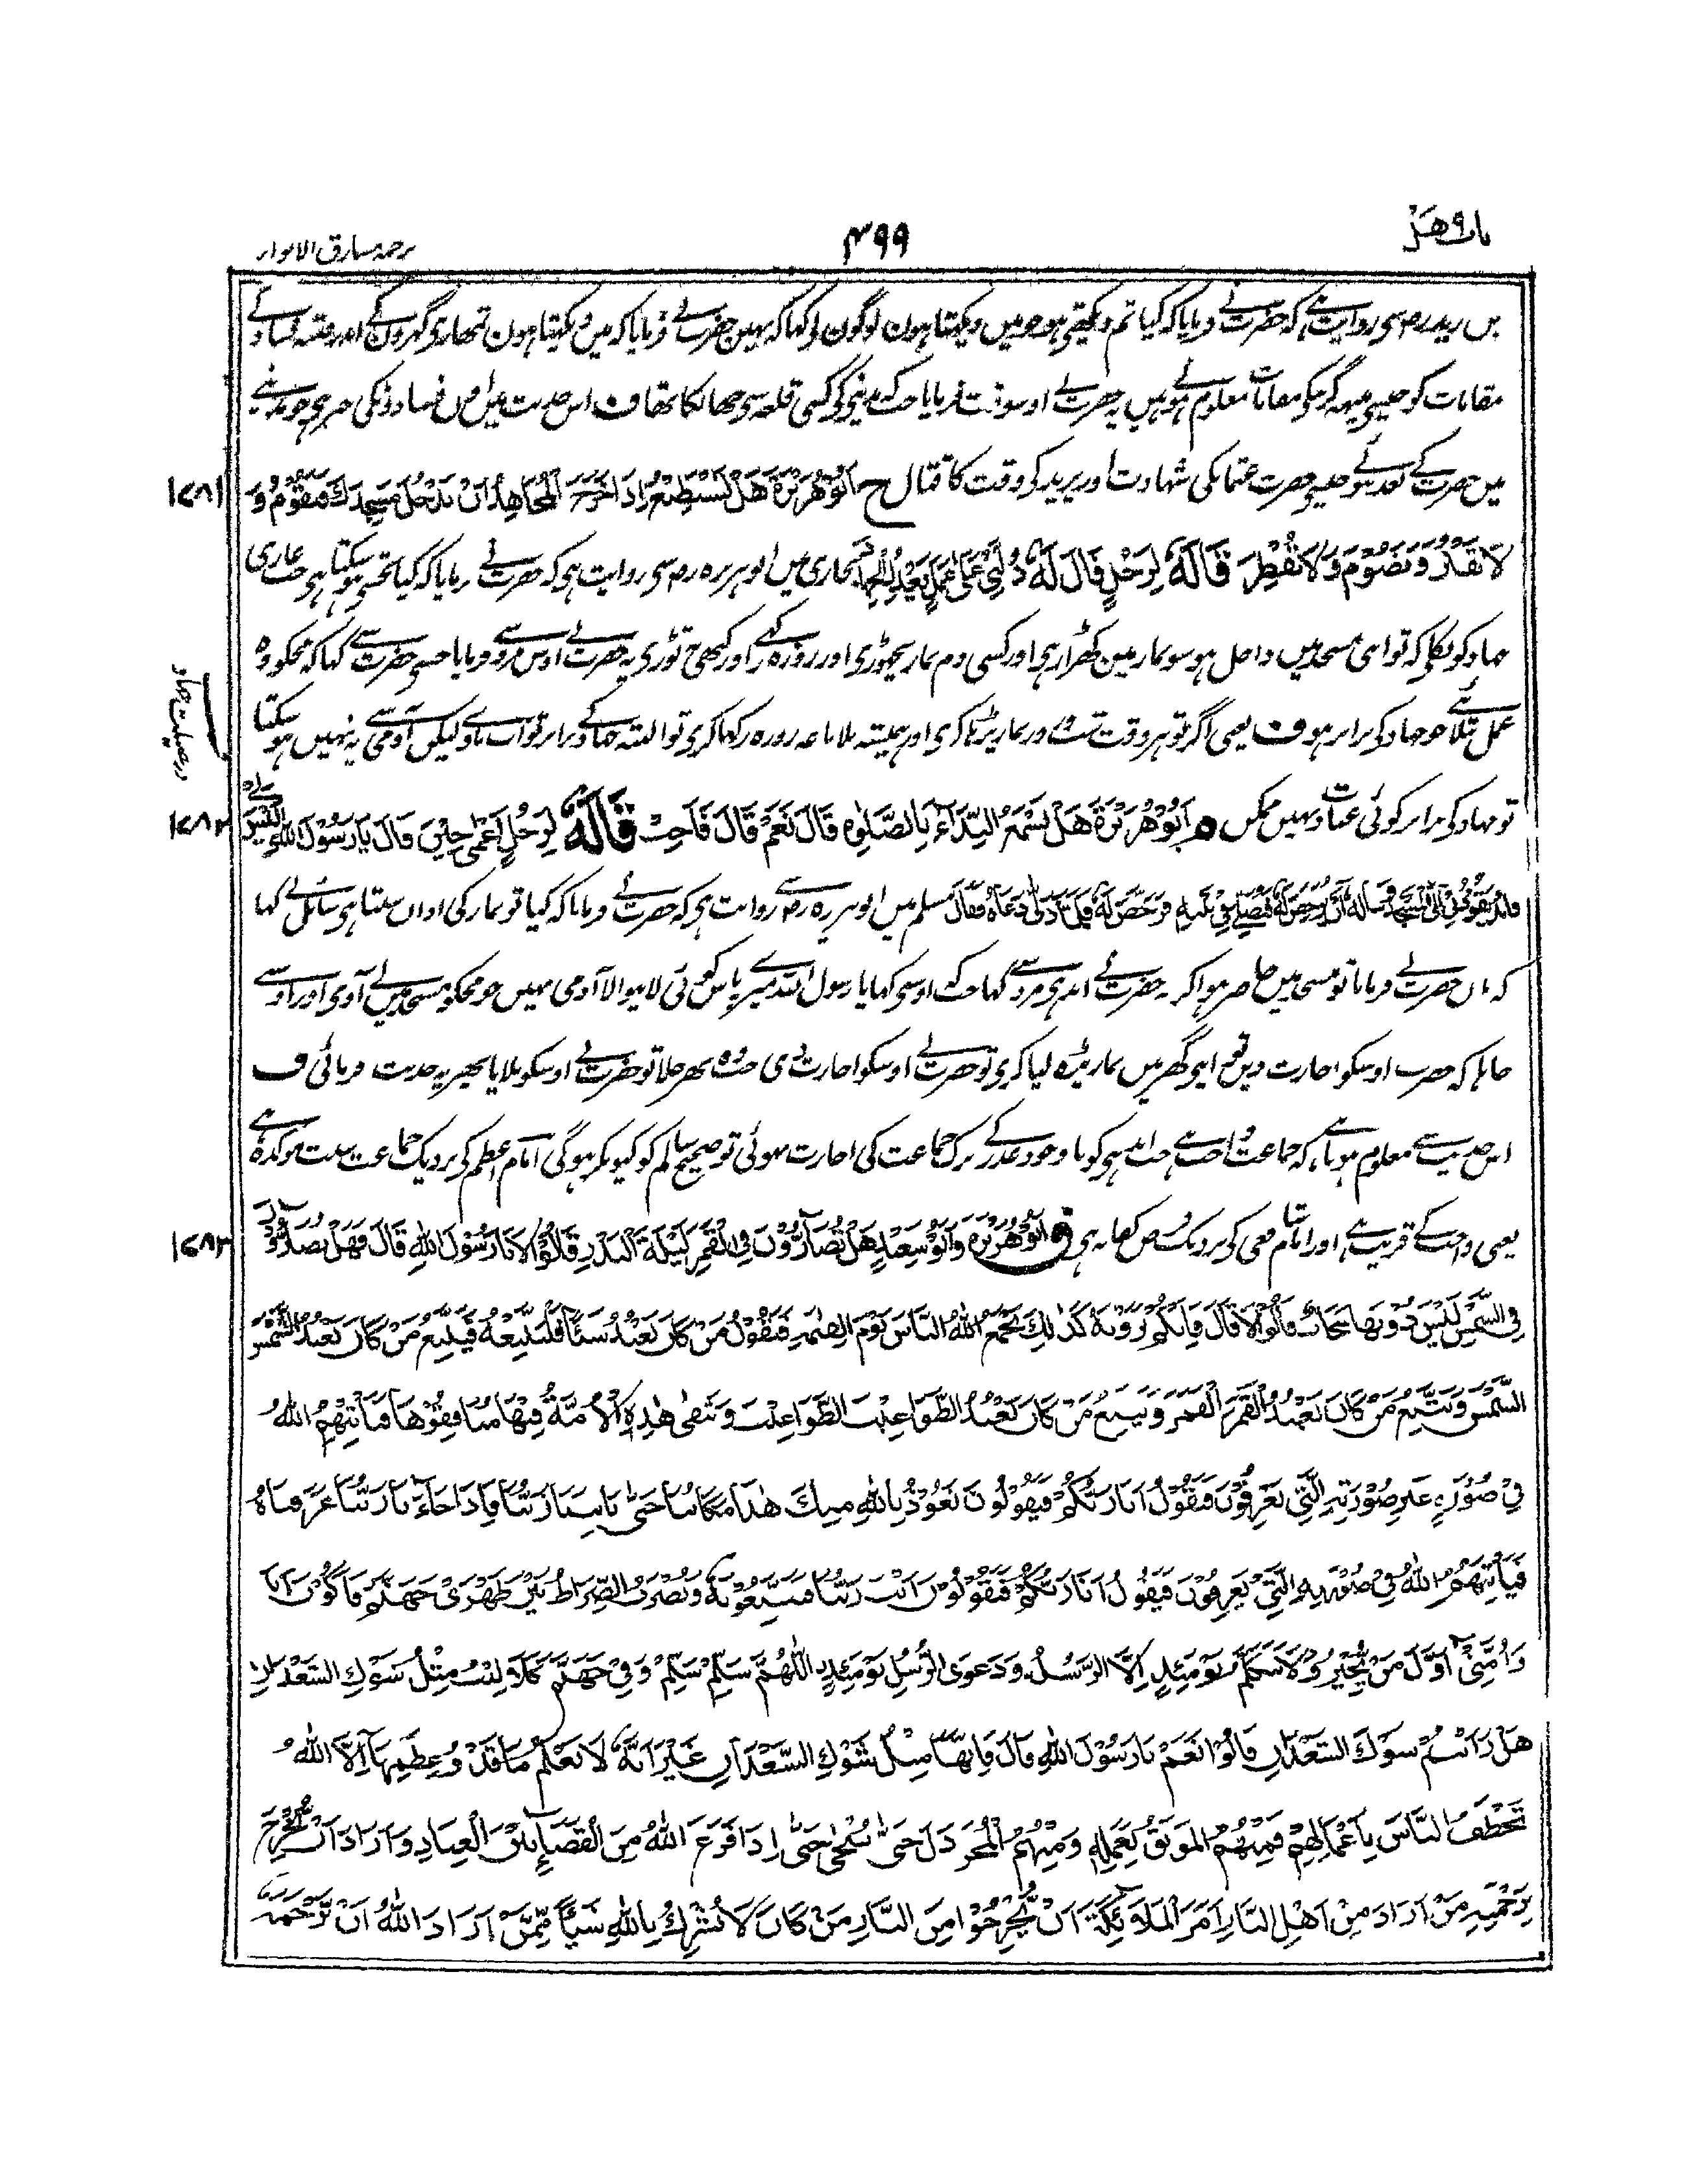 باب ۹ هَلْ
۴۹۹
ترجمہ مشارق الانوار
بن زید رض سی روایت ہے کہ حضرت نے فرمایا کہ کیا تم دیکھتی ہو جو میں دیکھتا ہون لوگون نی کہا کہ نہین حضرت نے فرمایا کہ میں دیکھتا ہون تمھاری گہرون کے اندر فتنہ فساد کے
مقامات کو جیسی مینہہ گرنیکو مقامات معلوم ہوتے ہیں یہ حضرت نے اوسوقت فرمایا جب کہ مدینی کی کسی قلعہ سی جھانکا تھا ف اس حدیث میں اون فسادونکی خبر ہی جو مدینے
میں حضرت کے بعد ہوئے جیسی حضرت عثمان کی شہادت اور یزید کی وقت کا قتال خ اَبُوْهُرَيْرَةَ هَلْ تَسْتَطِيْعُ اِذَا خَرَجَ الْمُجَاهِدُ اَنْ تَدْخُلَ مَسْجِدَكَ فَتَقُوْمَ وَ
۱۲۸۱
لَا تَفْتُرَ وَتَصُوْمَ وَلَا تُفْطِرَ قَالَهٗ لِرَجُلٍ قَالَ لَهٗ دُلَّنِيْ عَلٰى عَمَلٍ يَعْدِلُ الْجِهَادَ بخاری میں ابو ہریرہ رض سی روایت ہی کہ حضرت نے فرمایا کہ کیا تجھ سی ہو سکتا ہی جب غازی
جہاد کو نکلی کہ تو اپنی مسجد میں داخل ہو سو نماز مین کھڑا رہی اور کسی دم نماز نچھوڑی اور روزہ رکھے اور کبھی نتوڑی یہ حضرت نے اوس مرد سے فرمایا جسنی حضرت سے کہا کہ مجکو وہ
در فضیلت جہاد
عمل بتلائیے جو جہاد کی برابر ہو ف یعنی اگر تو ہر وقت شب و روز نماز پڑہا کری اور ہمیشہ بلا ناغہ روزہ رکھا کری تو البتہ جہاد کے برابر ثواب پاوے لیکن آدمی سے یہ نہیں ہو سکتا
تو جہاد کی برابر کوئی عبادت نہیں ممکن م اَبُوْهُرَيْرَةَ هَلْ تَسْمَعُ النِّدَاءَ بِالصَّلٰوةِ قَالَ نَعَمْ قَالَ فَاَجِبْ قَالَهٗ لِرَجُلٍ اَعْمٰى حِيْنَ قَالَ يَا رَسُوْلَ اللّٰهِ لَيْسَ لِيْ
۱۲۸۲
قَائِدٌ يَقُوْدُنِيْ اِلَى الْمَسْجِدِ فَسَاَلَهٗ اَنْ يُرَخِّصَ لَهٗ فَيُصَلِّيَ فِيْ بَيْتِهٖ فَرَخَّصَ لَهٗ فَلَمَّا وَلّٰى دَعَاهُ فَقَالَ مسلم میں ابو ہریرہ رض سے روایت ہی کہ حضرت نے فرمایا کہ کیا تو نماز کی اذان سنتا ہی سائل نے کہا
کہ ہاں حضرت نے فرمایا تو مسجد میں حاضر ہوا کر یہ حضرت نے اندہی مرد سے کہا جب کہ اوسنی کہا یا رسول اللہ میرے پاس کوئی لانیوالا آدمی نہیں جو مجکو مسجد میں لے آوی اور اوسنے
چاہا کہ حضرت اوسکو اجازت دیں تو اپنی گھر میں نماز پڑہ لیا کری تو حضرت نے اوسکو اجازت دی جب وہ پھر چلا تو حضرت نے اوسکو بلایا پھر یہ حدیث فرمائی ف
اس حدیث سے معلوم ہوتا ہے کہ جماعت واجب ہے جب اندہی کو باوجود عذر کے ترک جماعت کی اجازت نہوئی تو صحیح سالم کو کیونکر ہو گی امام اعظم کی نزدیک جماعت سنت موکدہ ہے
یعنی واجب کے قریب ہے اور امام شافعی کی نزدیک فرض کفایہ ہی ق اَبُوْهُرَيْرَةَ وَاَبُوْسَعِيْدٍ هَلْ تُضَارُّوْنَ فِي الْقَمَرِ لَيْلَةَ الْبَدْرِ قَالُوْا لَا يَا رَسُوْلَ اللّٰهِ قَالَ فَهَلْ تُضَارُّوْنَ
۱۲۸۳
فِي الشَّمْسِ لَيْسَ دُوْنَهَا سَحَابٌ قَالُوْا لَا قَالَ فَاِنَّكُمْ تَرَوْنَهٗ كَذٰلِكَ يَجْمَعُ اللّٰهُ النَّاسَ يَوْمَ الْقِيٰمَةِ فَيَقُوْلُ مَنْ كَانَ يَعْبُدُ شَيْئًا فَلْيَتَّبِعْهُ فَيَتَّبِعُ مَنْ كَانَ يَعْبُدُ الشَّمْسَ
الشَّمْسَ وَيَتَّبِعُ مَنْ كَانَ يَعْبُدُ الْقَمَرَ الْقَمَرَ وَيَتَّبِعُ مَنْ كَانَ يَعْبُدُ الطَّوَاغِيْتَ الطَّوَاغِيْتَ وَتَبْقٰى هٰذِهِ الْاُمَّةُ فِيْهَا مُنَافِقُوْهَا فَيَاْتِيْهِمُ اللّٰهُ
فِيْ صُوْرَةٍ غَيْرِ صُوْرَتِهِ الَّتِيْ يَعْرِفُوْنَ فَيَقُوْلُ اَنَا رَبُّكُمْ فَيَقُوْلُوْنَ نَعُوْذُ بِاللّٰهِ مِنْكَ هٰذَا مَكَانُنَا حَتّٰى يَاْتِيَنَا رَبُّنَا فَاِذَا جَاءَ رَبُّنَا عَرَفْنَاهُ
فَيَاْتِيْهِمُ اللّٰهُ فِيْ صُوْرَتِهِ الَّتِيْ يَعْرِفُوْنَ فَيَقُوْلُ اَنَا رَبُّكُمْ فَيَقُوْلُوْنَ اَنْتَ رَبُّنَا فَيَتَّبِعُوْنَهٗ وَيُضْرَبُ الصِّرَاطُ بَيْنَ ظَهْرَيْ جَهَنَّمَ فَاَكُوْنُ اَنَا
وَاُمَّتِيْ اَوَّلَ مَنْ يُّجِيْزُ وَلَا يَتَكَلَّمُ يَوْمَئِذٍ اِلَّا الرُّسُلُ وَدَعْوَى الرُّسُلِ يَوْمَئِذٍ اَللّٰهُمَّ سَلِّمْ سَلِّمْ وَفِيْ جَهَنَّمَ كَلَالِيْبُ مِثْلُ شَوْكِ السَّعْدَانِ
هَلْ رَاَيْتُمْ شَوْكَ السَّعْدَانِ قَالُوْا نَعَمْ يَا رَسُوْلَ اللّٰهِ قَالَ فَاِنَّهَا مِثْلُ شَوْكِ السَّعْدَانِ غَيْرَ اَنَّهٗ لَا يَعْلَمُ مَا قَدْرُ عِظَمِهَا اِلَّا اللّٰهُ
تَخْطَفُ النَّاسَ بِاَعْمَالِهِمْ فَمِنْهُمُ الْمُوْبَقُ بِعَمَلِهٖ وَمِنْهُمُ الْمُخَرْدَلُ حَتّٰى يُنَجّٰى حَتّٰى اِذَا فَرَغَ اللّٰهُ مِنَ الْقَضَاءِ بَيْنَ الْعِبَادِ وَاَرَادَ اَنْ يُّخْرِجَ
بِرَحْمَتِهٖ مَنْ اَرَادَ مِنْ اَهْلِ النَّارِ اَمَرَ الْمَلَائِكَةَ اَنْ يُّخْرِجُوْا مِنَ النَّارِ مَنْ كَانَ لَا يُشْرِكُ بِاللّٰهِ شَيْئًا مِّمَّنْ اَرَادَ اللّٰهُ اَنْ يَّرْحَمَهٗ